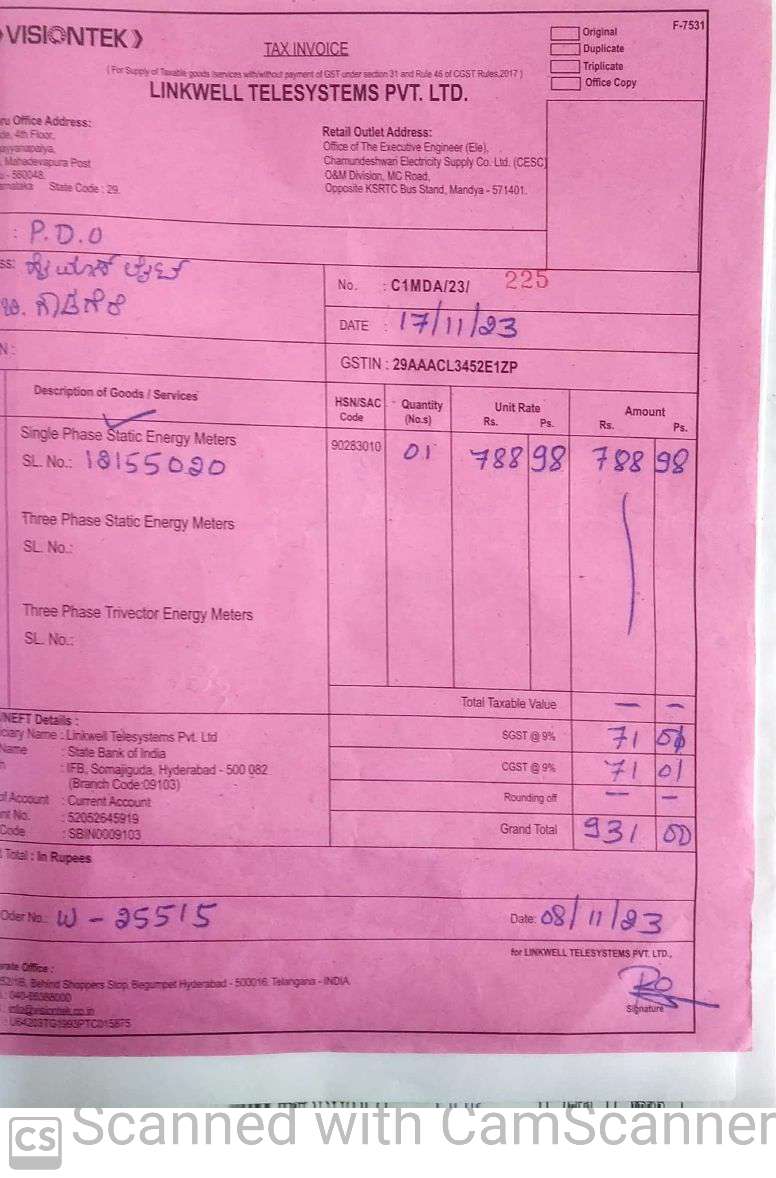 VISIONTEK
TAX INVOICE
Original
Duplicate
Triplicate
Office Copy
F-7531
( For Supply of Taxable goods /services with/without payment of GST under section 31 and Rule 46 of CGST Rules,2017 )
LINKWELL TELESYSTEMS PVT. LTD.
ru Office Address:
de, 4th Floor,
ayyanapalya,
, Mahadevapura Post
u - 560048.
rnataka State Code : 29.
Retail Outlet Address:
Office of The Executive Engineer (Ele),
Chamundeshwari Electricity Supply Co. Ltd. (CESC)
O&M Division, MC Road,
Opposite KSRTC Bus Stand, Mandya - 571401.
: P.D.O
ss:
No. : C1MDA/23/ 225
DATE : 17/11/23
N :
GSTIN : 29AAACL3452E1ZP
Description of Goods / Services
HSN/SAC Code
Quantity (No.s)
Unit Rate
Rs. Ps.
Amount
Rs. Ps.
Single Phase Static Energy Meters
SL. No.: 18155020
90283010 01 788 98 788 98
Three Phase Static Energy Meters
SL. No.:
Three Phase Trivector Energy Meters
SL. No.:
Total Taxable Value — —
/NEFT Details :
ciary Name : Linkwell Telesystems Pvt. Ltd
Name : State Bank of India
h : IFB, Somajiguda, Hyderabad - 500 082
(Branch Code:09103)
of Account : Current Account
nt No. : 52052645919
Code : SBIN0009103
SGST @ 9% 71 01
CGST @ 9% 71 01
Rounding off — —
Grand Total 931 00
l Total : In Rupees
Oder No.: W - 25515
Date: 08/11/23
for LINKWELL TELESYSTEMS PVT. LTD.,
Signature
rate Office :
52/1B, Behind Shoppers Stop, Begumpet Hyderabad - 500016, Telangana - INDIA.
: 040-66388000
: info@visiontek.co.in
: U64203TG1993PTC015875
CS Scanned with CamScanner